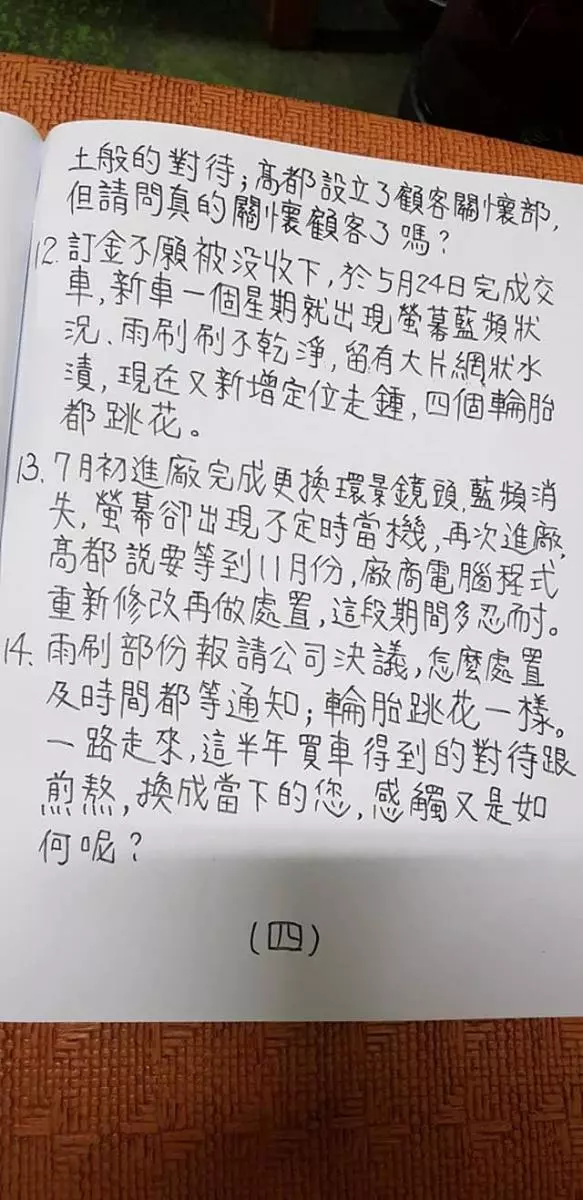 土般的對待;高都設立了顧客關懷部,
但請問真的關懷顧客了嗎?
12. 訂金不願被没收下,於5月24日完成交
車,新車一個星期就出現螢幕藍頻狀
況、雨刷刷不乾淨,留有大片網狀水
漬,現在又新增定位走鍾,四個輪胎
都跳花。
13. 7月初進廠完成更換環景鏡頭,藍頻消
失,螢幕卻出現不定時當機,再次進廠,
高都說要等到11月份,廠商電腦程式
重新修改再做處置,這段期間多忍耐。
14. 雨刷部份報請公司決議,怎麼處置
及時間都等通知;輪胎跳花一樣。
一路走來,這半年買車得到的對待跟
煎熬,換成當下的您,感觸又是如
何呢?
(四)